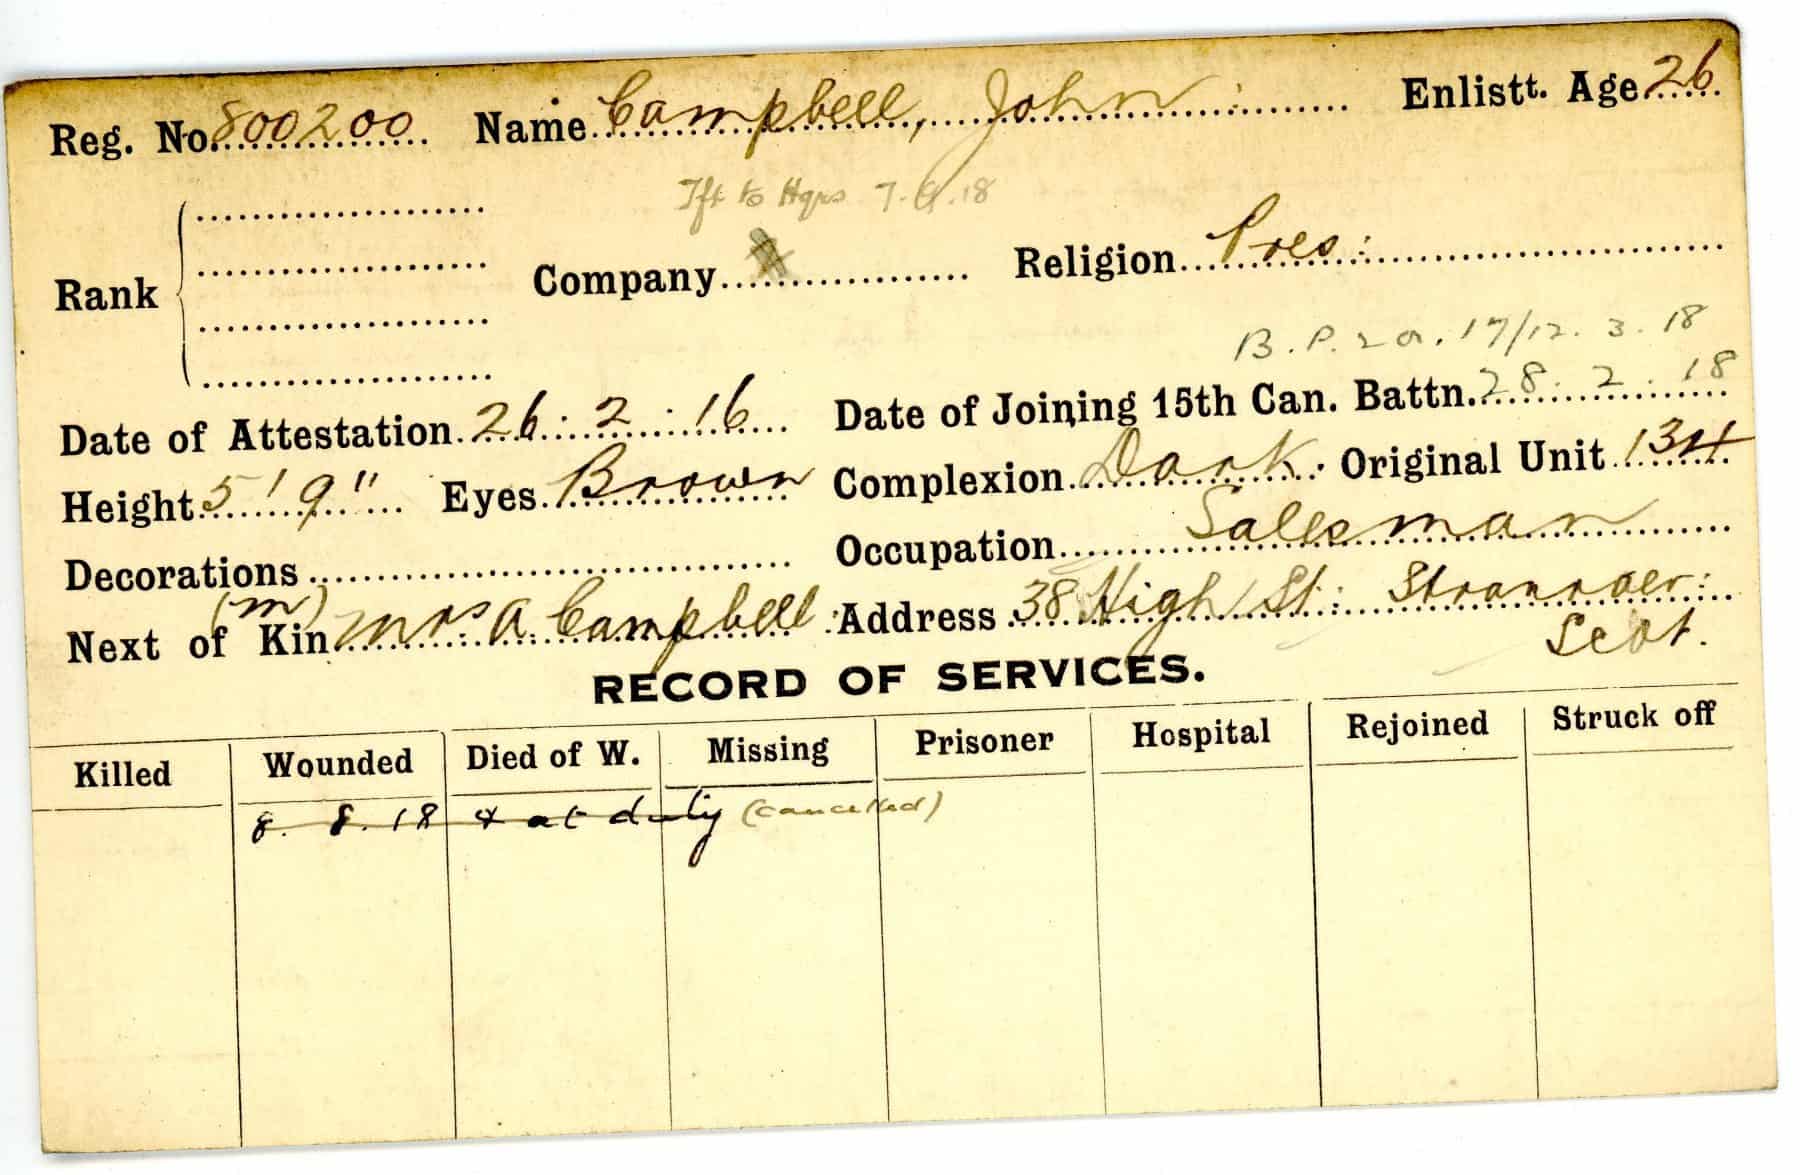 Reg. No. 800200 Name Campbell, John Enlistt. Age 26
Tft to Hqrs 7.9.18
Rank Company Religion Pres:
B.P.2a. 17/12.3.18
Date of Attestation 26.2.16 Date of Joining 15th Can. Battn. 28.2.18
Height 5'9" Eyes Brown Complexion Dark. Original Unit 134
Decorations Occupation Salesman
(m)
Next of Kin Mrs. A. Campbell. Address 38 High St: Stranraer:
Scot.
RECORD OF SERVICES.
Killed Wounded Died of W. Missing Prisoner Hospital Rejoined Struck off
8.8.18 & at duty (cancelled)